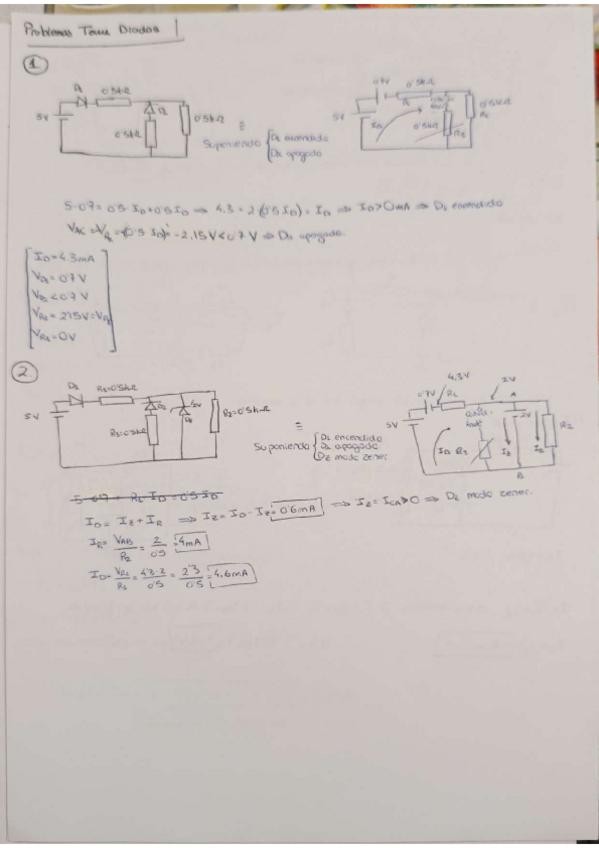 Problemas Tema Diodos 1
1
D1 0'5kΩ
5V D2 0'5kΩ
0'5kΩ
≡
Suponiendo { D1 encendido
D2 apagado
0'7V 0'5kΩ
5V R1 0'5kΩ
ID 0'5kΩ R2
5-0.7=0'5·ID+0'5ID ⇒ 4.3=2·(0'5ID)=ID ⇒ ID>0mA ⇒ D1 encendido
-2.15V<0.7V ⇒ D2 apagado.
ID=4.3mA
VD1=0.7V
VD2<0.7V
VR1=2.15V
VR2=0V
2
D1 R1=0'5kΩ
5V D2 2V R2=0'5kΩ
R3=0'5kΩ
≡
Suponiendo { D1 encendido
D2 apagado
DZ modo zener.
4.3V 2V
0.7V R1 A
5V 2V R2
ID R3 IZ IR
B
5-0.7 = R1·ID=0.5ID
ID = IZ+IR ⇒ IZ=ID-IR=0'6mA ⇒ IZ=ICA>0 ⇒ DZ modo zener.
IR=VAB/R2=2/0'5=4mA
ID=VR1/R1=4'3-2/0'5=2'3/0'5=4.6mA